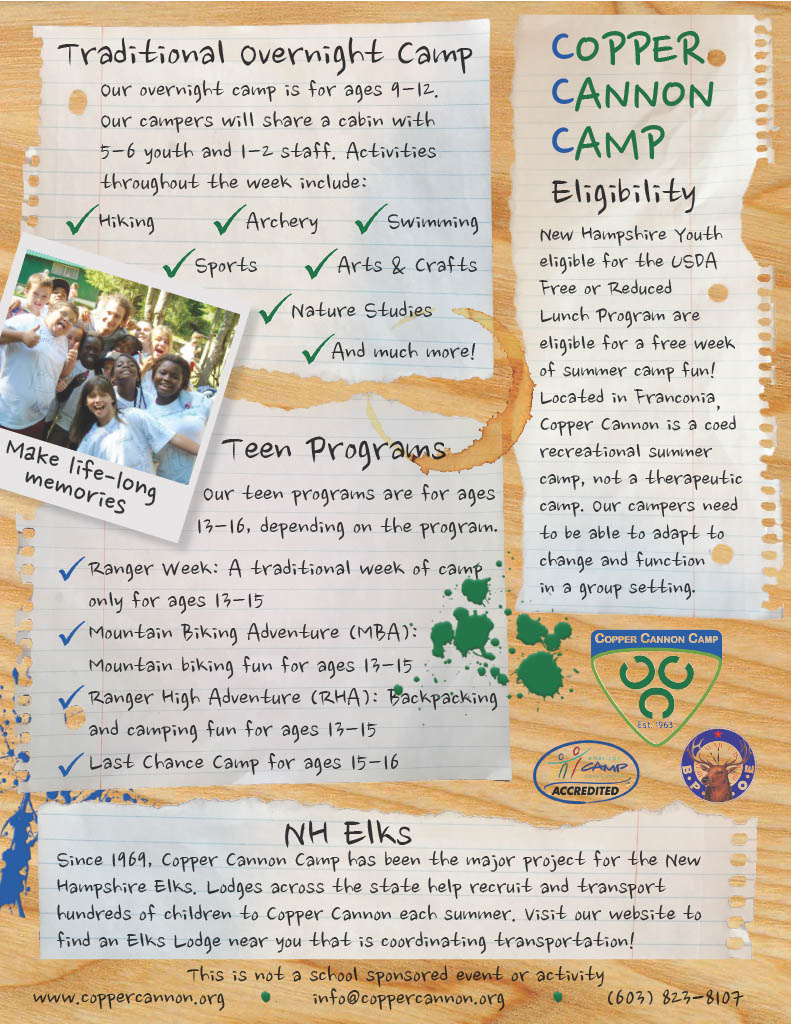 Traditional Overnight Camp
Our overnight camp is for ages 9-12.
Our campers will share a cabin with
5-6 youth and 1-2 staff. Activities
throughout the week include:
Hiking Archery Swimming
Sports Arts & Crafts
Nature Studies
And much more!
Make life-long
memories
Teen Programs
Our teen programs are for ages
13-16, depending on the program.
Ranger Week: A traditional week of camp
only for ages 13-15
Mountain Biking Adventure (MBA):
Mountain biking fun for ages 13-15
Ranger High Adventure (RHA): Backpacking
and camping fun for ages 13-15
Last Chance Camp for ages 15-16
COPPER
CANNON
CAMP
Eligibility
New Hampshire Youth
eligible for the USDA
Free or Reduced
Lunch Program are
eligible for a free week
of summer camp fun!
Located in Franconia,
Copper Cannon is a coed
recreational summer
camp, not a therapeutic
camp. Our campers need
to be able to adapt to
change and function
in a group setting.
COPPER CANNON CAMP
CCC
Est. 1963
CAMP
ACCREDITED
B.P.O.E
NH Elks
Since 1969, Copper Cannon Camp has been the major project for the New
Hampshire Elks. Lodges across the state help recruit and transport
hundreds of children to Copper Cannon each summer. Visit our website to
find an Elks Lodge near you that is coordinating transportation!
This is not a school sponsored event or activity
www.coppercannon.org • info@coppercannon.org • (603) 823-8107